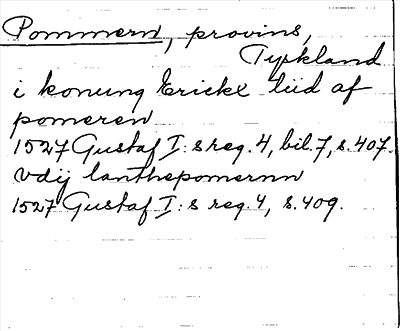 Pommern, provins,
Tyskland
i konung Ericks tiid af
pomeren
1527 Gustaf I:s reg. 4, bil. 7, s. 407.
vdij lanthepomernn
1527 Gustaf I:s reg. 4, s. 409.